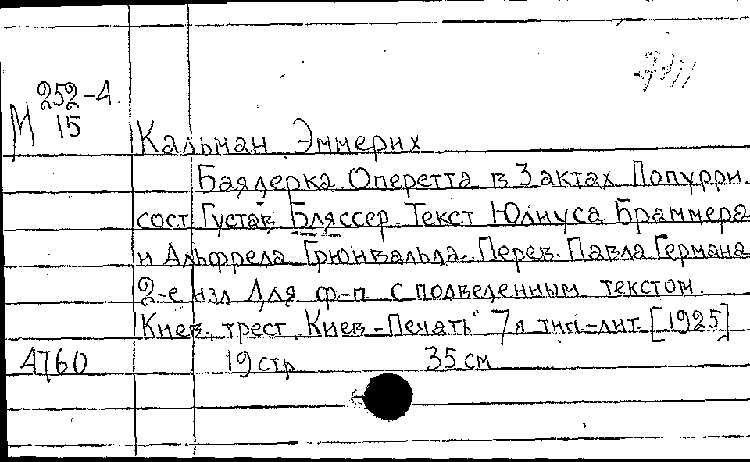 252-4
М 15
Кальман Эммерих
Баядерка. Оперетта в 3 актах. Попурри.
сост. Густав Бляссер. Текст Юлиуса Браммера
и Альфреда Грюнвальда. Перев. Павла Германа
2-е изд. Для ф-п с подведенным текстом.
Киев. трест „Киев-Печать" 7я тип-лит. [1925]
4760 19 стр 35 см